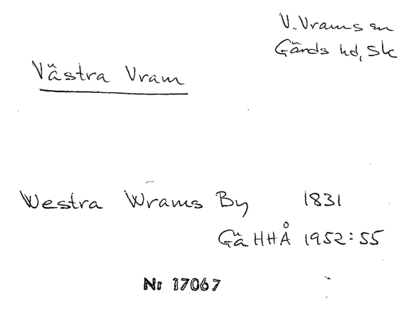 V. Vrams sn
Gärds hd, Sk
Västra Vram
Westra Wrams By 1831
Gä HHÅ 1952:55
Nr 17067